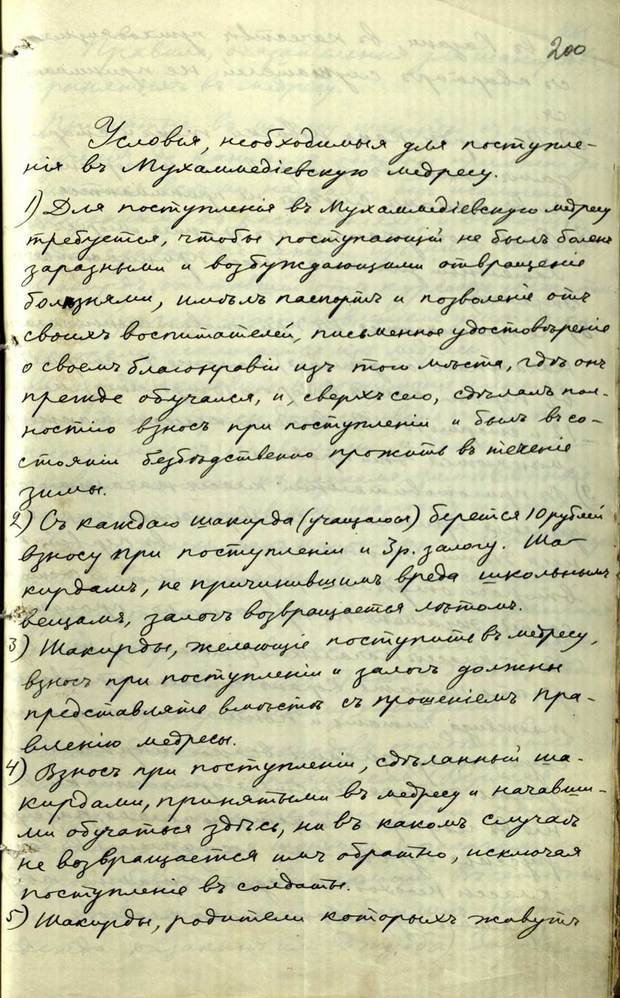 200
Условія, необходимыя для поступле-
нія въ Мухаммедіевскую медресу.
1) Для поступленія въ Мухаммедіевскую медресу
требуется, чтобы поступающій не былъ боленъ
заразными и возбуждающими отвращеніе
болезнями, имѣлъ паспортъ и позволеніе отъ
своихъ воспитателей, письменное удостовѣреніе
о своемъ благонравіи изъ того мѣста, гдѣ онъ
прежде обучался, и, сверхъ сего, сдѣлалъ пол-
ностію взносъ при поступленіи и былъ въ со-
стояніи безбѣдственно прожить въ теченіе
зимы.
2) Съ каждаго шакирда (учащагося) берется 10 рублей
взносу при поступленіи и 3 р. залогу. Ша-
кирдамъ, не причинившимъ вреда школьнымъ
вещамъ, залогъ возвращается лѣтомъ.
3) Шакирды, желающіе поступить въ медресу,
взносъ при поступленіи и залогъ должны
представлять вмѣстѣ съ прошеніемъ пра-
вленію медресы.
4) Взносъ при поступленіи, сдѣланный ша-
кирдами, принятыми въ медресу и начавши-
ми обучаться здѣсь, ни въ какомъ случаѣ
не возвращается имъ обратно, исключая
поступленіе въ солдаты.
5) Шакирды, родители которыхъ живутъ